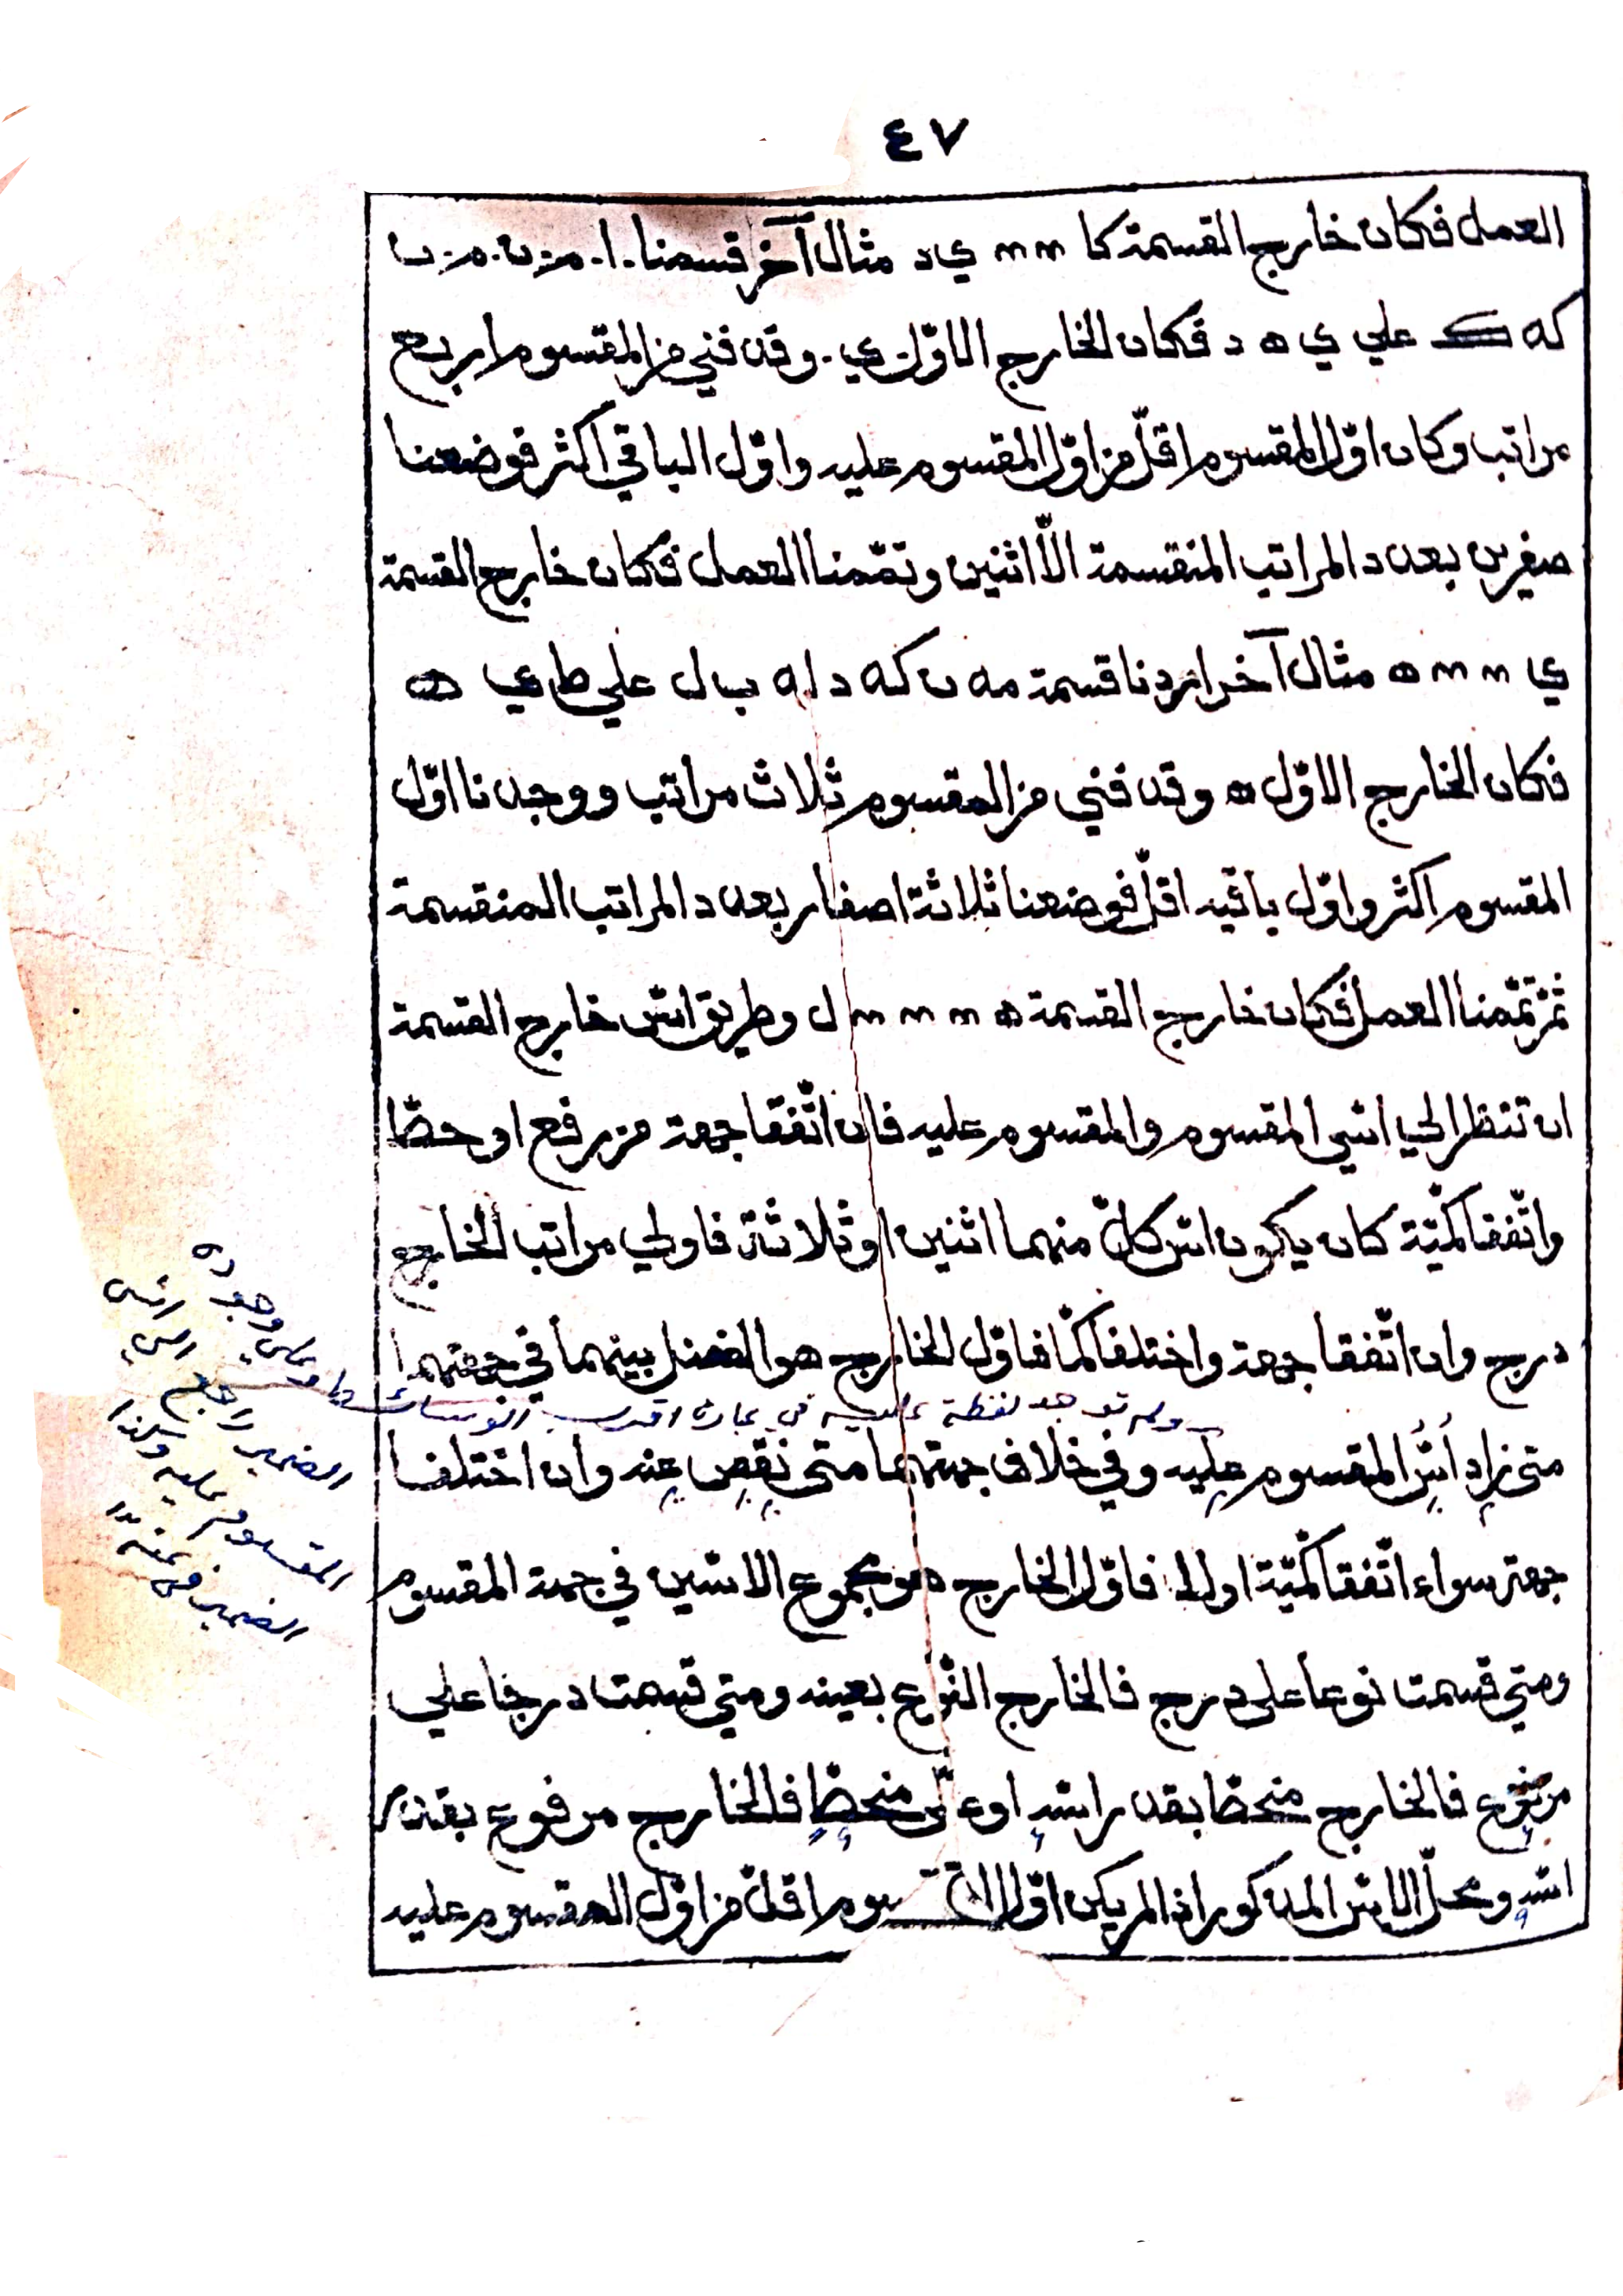 ٤٧
العمل فكان خارج القسمة كا ٣٣ ي د مثال آخر قسمنا
كه ك علي ي ه د فكان الخارج الاوّل ي. وقد فني من المقسوم اربع
مراتب وكان اوّل المقسوم اقلّ من اوّل المقسوم عليه واوّل الباقي اكثر فوضعنا
صفرين بعدد المراتب المنقسمة الاّ اثنين وتمّمنا العمل فكان خارج القسمة
ي ٣ ٣ ه مثال آخر اردنا قسمة مه ن كه د له ب ل علي ط ي ه
فكان الخارج الاوّل ه وقد فني من المقسوم ثلاث مراتب ووجدنا اوّل
المقسوم اكثر واوّل باقيه اقلّ فوضعنا ثلاثة اصفار بعدد المراتب المنقسمة
ثمّ تمّمنا العمل فكان خارج القسمة ه ٣ ٣ ٣ ل وطريق اسّ خارج القسمة
ان تنظر الي اسّي المقسوم والمقسوم عليه فان اتّفقا جهة من رفع او حطّ
واتّفقا كمّيّة كان يكون اسّ كلّ منهما اثنين او ثلاثة فاولي مراتب الخارج
درج وان اتّفقا جهة واختلفا كمّا فاوّل الخارج هو الفضل بينهما في جهتهما
ولم توجد لفظة عليه في عبارة
متى زاد اسّ المقسوم عليه وفي خلاف جهتهما متى نقص عنه وان اختلفا
جهة سواء اتّفقا كمّيّة او لا فاوّل الخارج هو مجموع الاسّين في جهة المقسوم
ومتي قسمت نوعا على درج فالخارج النّوع بعينه ومتي قسمت درجا علي
مرفوع فالخارج منحطّ بقدر اسّه او على منحطّ فالخارج مرفوع بقدر
اسّه ومحلّ الاسّ المذكور اذا لم يكن اوّل المقسوم اقلّ من اوّل المقسوم عليه
الضمير راجع الي اسّ
المقسوم عليه وكذا
الضمير في عنه